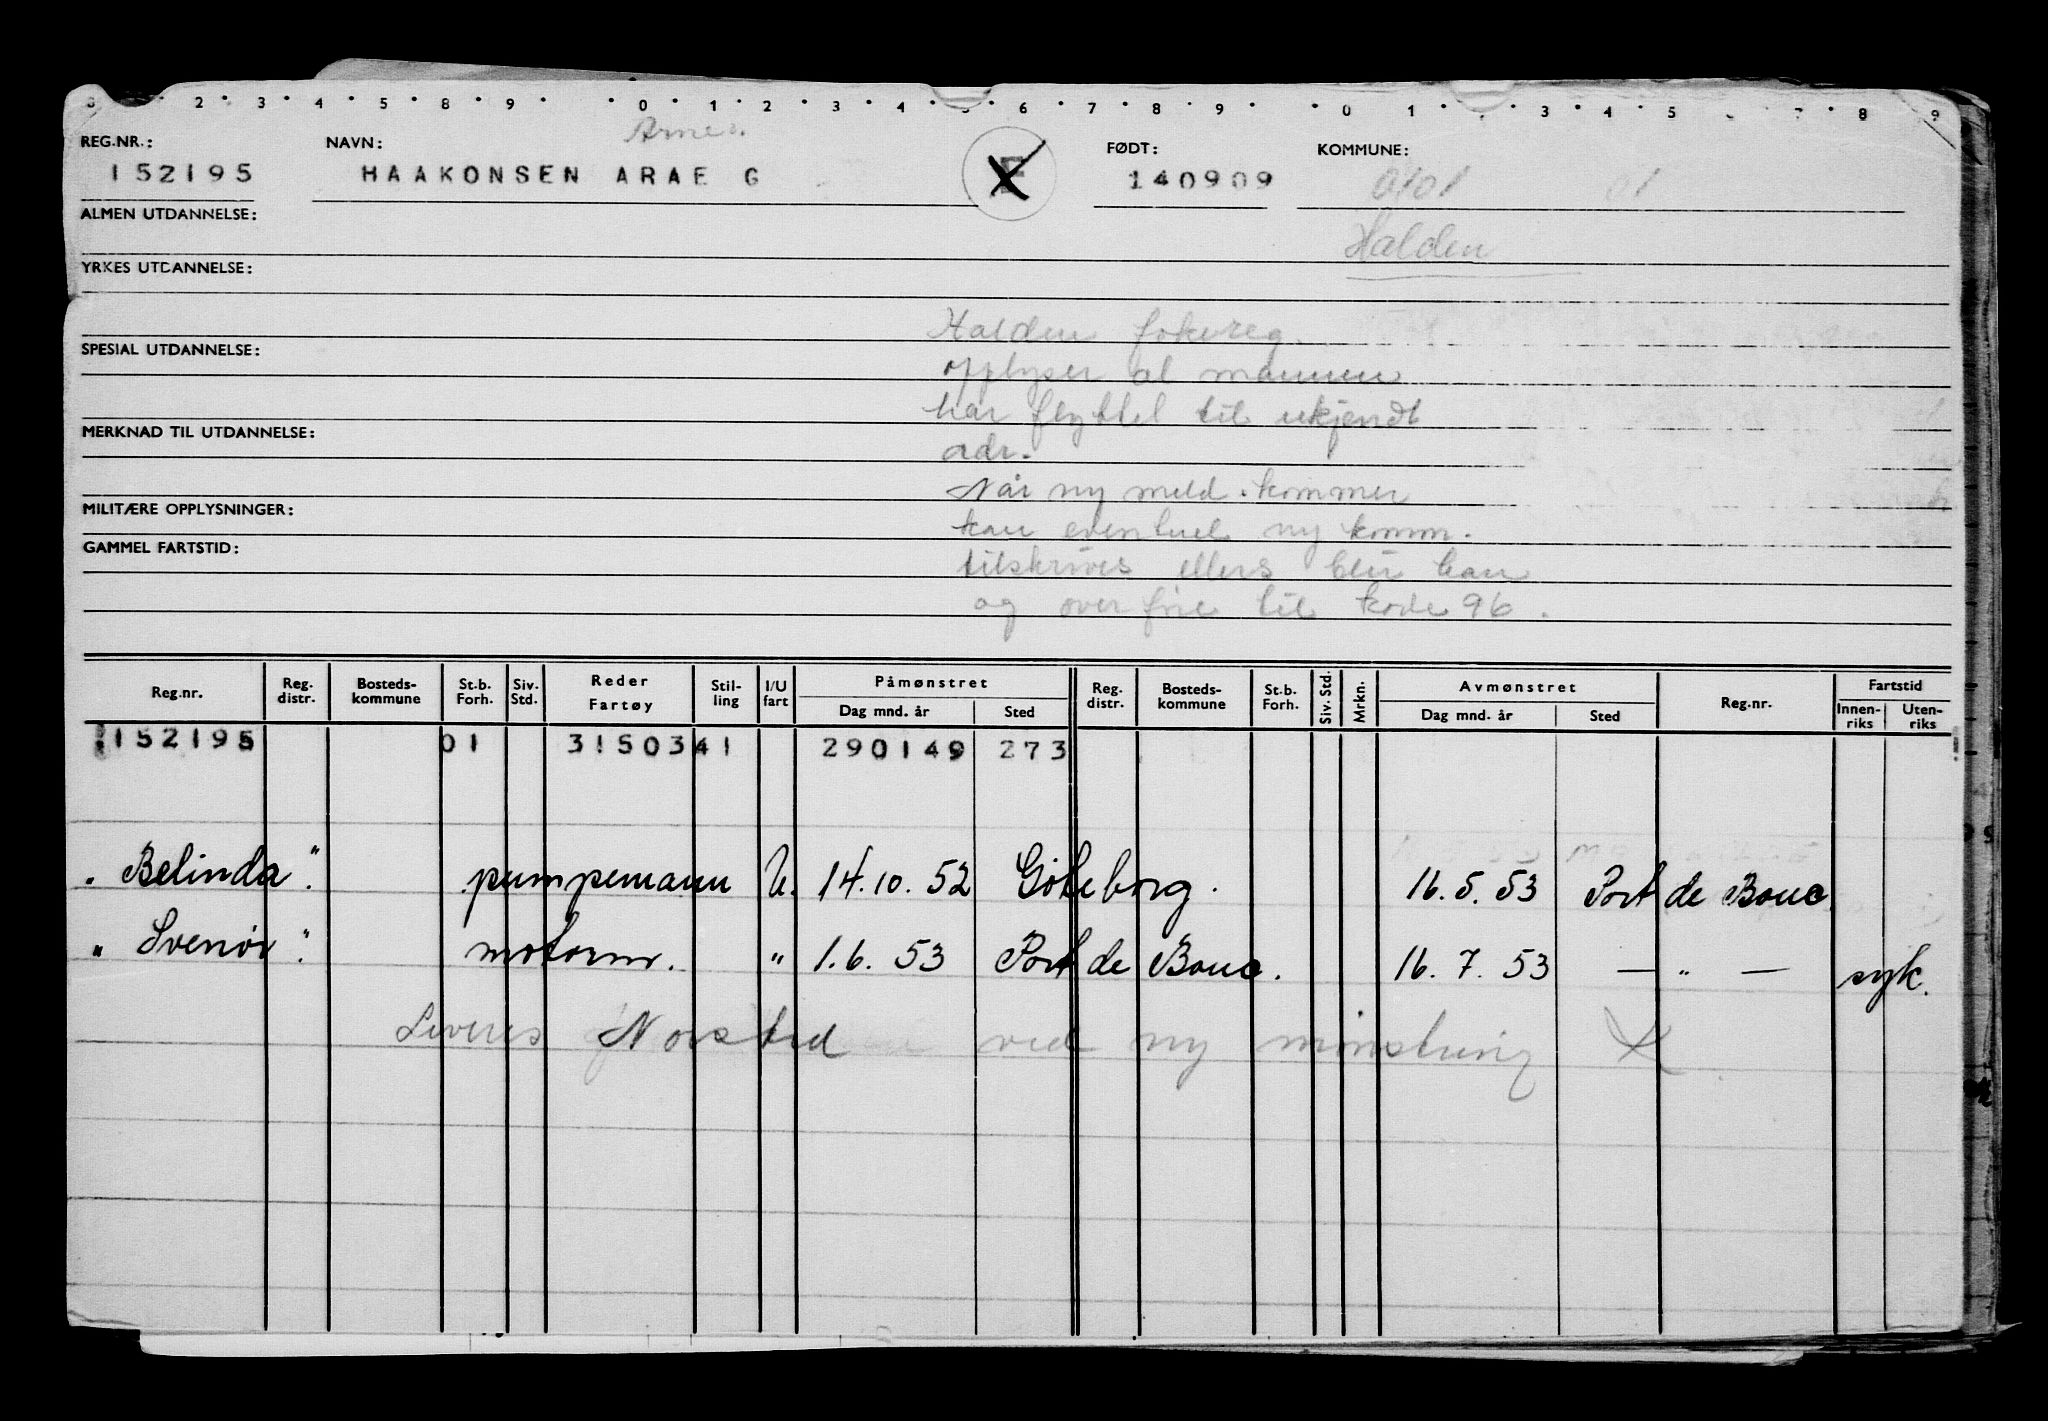 2 3 4 5 8 9 0 1 2 3 4 6 7 8 9 0 1 3 4 5 7 8 9
Arne
REG.NR.: NAVN: FØDT: KOMMUNE:
152195 HAAKONSEN ARAE G E 140909 0101 01
ALMEN UTDANNELSE:
Halden
YRKES UTDANNELSE:
Halden fokereg.
SPESIAL UTDANNELSE:
opplyser at mannen
har flyttet til ukjendt
MERKNAD TIL UTDANNELSE:
adr.
Når ny meld. kommer
MILITÆRE OPPLYSNINGER:
kan eventuel ny komm.
GAMMEL FARTSTID:
tilskrives ellers blir han
og over före til kode 96.
Reg.nr. Reg. distr. Bosteds-kommune St.b. Forh. Siv. Std. Reder Fartøy Stil-ling I/U fart Påmønstret Dag mnd. år Sted Reg. distr. Bosteds-kommune St.b. Forh. Siv. Std. Mrkn. Avmønstret Dag mnd. år Sted Reg.nr. Fartstid Innen-riks Uten-riks
152195 01 3150341 290149 273
"Belinda". pumpemann U. 14.10.52 Göteborg. 16.5.53 Port de Bouc
"Svenör". motorm. " 1.6.53 Port de Bouc. 16.7.53 — " — syk.
Leveres Norstad ved ny mönstring X